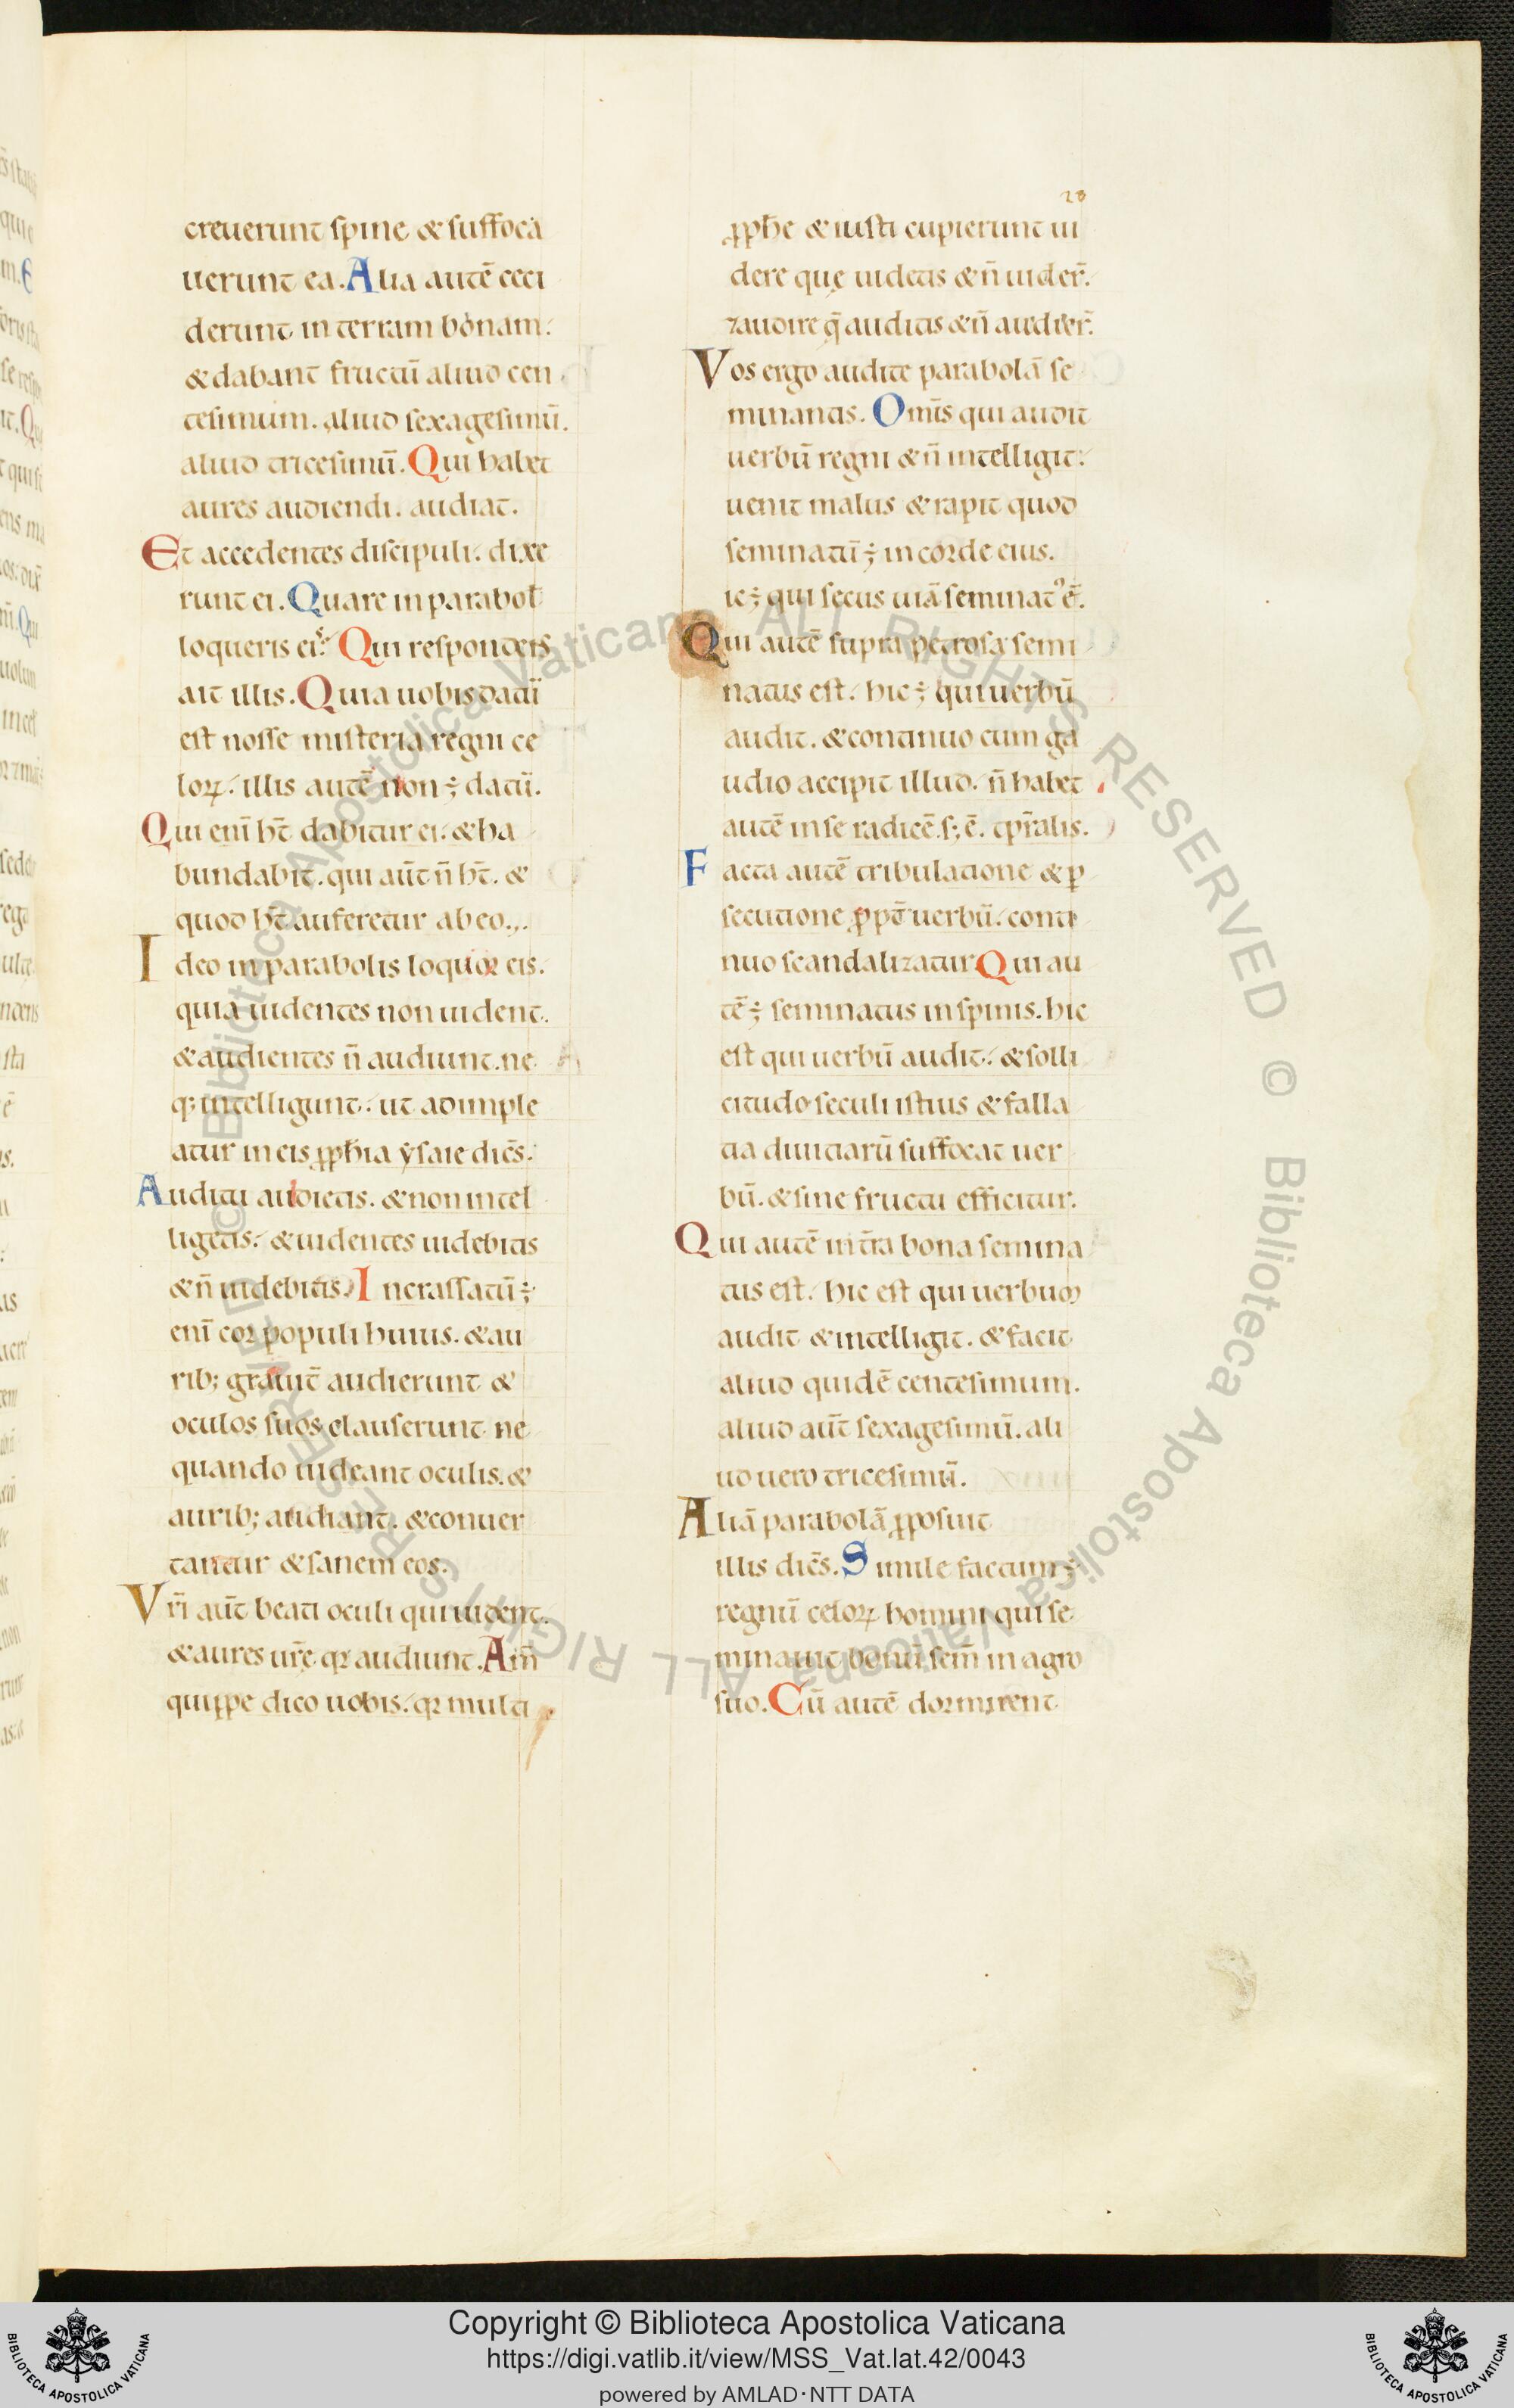 28
creuerunt spine & suffoca
uerunt ea. Alia autē ceci
derunt in terram bonam.
& dabant fructū aliud cen
tesimum. aliud sexagesimū.
aliud tricesimū. Qui habet
aures audiendi. audiat.
Et accedentes discipuli. dixe
runt ei. Quare in parabol̄
loqueris eis? Qui respondens
ait illis. Quia uobis datū
est nosse misteria regni ce
loꝝ. illis autē non ÷ datū.
Qui enī hт̄ dabitur ei. & ha
bundabit. qui aūt n̄ hт̄. &
quod hт̄ auferetur ab eo.
Ideo in parabolis loquor eis.
quia uidentes non uident.
& audientes n̄ audiunt. ne
q; intelligunt. ut adimple
atur in eis ꝓph̄ia ẏsaie dicēs.
Auditu audietis. & non intel
ligetis. & uidentes uidebitis
& n̄ uidebitis. Incrassatū ÷
enī cor populi huius. & au
rib; grauit̄ audierunt &
oculos suos clauserunt ne
quando uideant oculis. &
aurib; audiant. & conuer
tantur & sanem eos.
Vr̄i aūt beati oculi qui uident.
& aures ur̄e qꝛ audiunt. Am̄
quippe dico uobis. qꝛ multi
ꝓph̄e & iusti cupierunt ui
dere que uidetis & n̄ uider̄.
⁊ audire q̄ auditis & n̄ audier̄.
Vos ergo audite parabolā se
minantis. Omīs qui audit
uerbū regni & n̄ intelligit.
uenit malus & rapit quod
seminatū ÷ in corde eius.
ic ÷ qui secus uiā seminatꝰ ē.
Qui autē supra petrosa semi
natus est. hic ÷ qui uerbū
audit. & continuo cum ga
udio accipit illud. n̄ habet
autē in se radicē. s; ē. tp̄ralis.
Facta autē tribulatione & ꝑ
secutione ꝓpт̄ uerbū. conti
nuo scandalizatur Qui au
tē ÷ seminatus in spinis. hic
est qui uerbū audit. & solli
citudo seculi istius & falla
tia diuitiarū suffocat uer
bū. & sine fructu efficitur.
Qui autē in t̄ra bona semina
tus est. hic est qui uerbum
audit & intelligit. & facit
aliud quidē centesimum.
aliud aūt sexagesimū. ali
ud uero tricesimū.
Aliā parabolā ꝓposuit
illis dicēs. Simile factum ÷
regnū celoꝝ homini qui se
minauit bonū sem̄ in agro
suo. Cū autē dormirent
Copyright © Biblioteca Apostolica Vaticana
https://digi.vatlib.it/view/MSS_Vat.lat.42/0043
powered by AMLAD·NTT DATA
BIBLIOTECA APOSTOLICA VATICANA
BIBLIOTECA APOSTOLICA VATICANA
© Biblioteca Apostolica Vaticana ALL RIGHTS RESERVED © Biblioteca Apostolica Vaticana ALL RIGHTS RESERVED